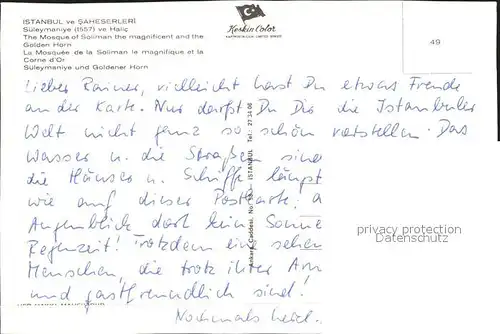 İSTANBUL ve ŞAHESERLERİ
Süleymaniye (1557) ve Haliç
The Mosque of Soliman the magnificent and the
Golden Horn
La Mosquée de la Soliman le magnifique et la
Corne d'Or
Süleymaniye und Goldener Horn
Keskin Color
49
Lieber Rainer, vielleicht hast Du etwas Freude
an der Karte. Nur darfst Du Dir die Istanbuler
Welt nicht ganz so schön vorstellen. Das
Wasser u. die Straßen sind
die Häuser u. Schiffe längst
wie auf dieser Postkarte.
Augenblick dort kein Sonne
Regenzeit! Trotzdem ein sehen
Menschen, die trotz ihrer Arm
und gastfreundlich sind!
Nochmals herzl.
Ankara Caddesi, No. İSTANBUL Tel.: 27 34 06
privacy protection
Datenschutz